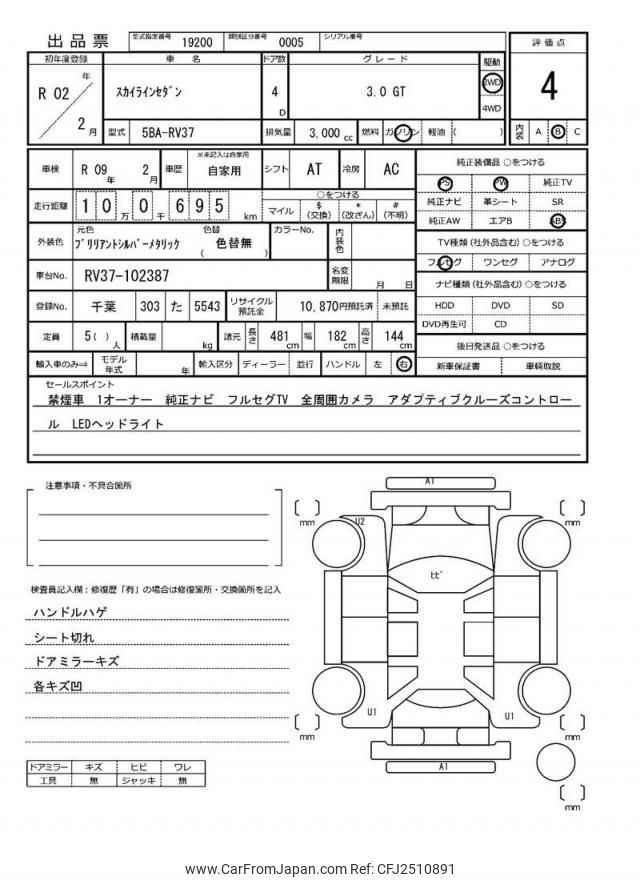 出品票 型式指定番号 19200 類別区分番号 0005 シリアル番号
初年度登録 車 名 ドア数 グレード 駆動 評価点
R 02 年 2 月 スカイラインセダン 4 D 3.0 GT 2WD 4WD 4
型式 5BA-RV37 排気量 3,000 cc 燃料 ガソリン 軽油 ( ) 内装 A B C
車検 R 09 年 2 月 車歴 ※未記入は自家用 自家用 シフト AT 冷房 AC
純正装備品 ○をつける
PS PW 純正TV
純正ナビ 革シート SR
純正AW エアB ABS
走行距離 1 0 万 0 千 6 9 5 km
○をつける
マイル $ (交換) * (改ざん) # (不明)
外装色 元色 ブリリアントシルバーメタリック 色替 ( 色替無 ) カラーNo. 内装色
TV種類 (社外品含む) ○をつける
フルセグ ワンセグ アナログ
車台No. RV37-102387 名変期限 月 日
ナビ種類 (社外品含む) ○をつける
HDD DVD SD
DVD再生可 CD
登録No. 千葉 303 た 5543 リサイクル預託金 10,870円預託済 未預託
定員 5( ) 人 積載量 kg 諸元 長さ 481 cm 幅 182 cm 高さ 144 cm
後日発送品 ○をつける
新車保証書 車輌取説
輸入車のみ⇒ モデル年式 年 輸入区分 ディーラー 並行 ハンドル 左 右
セールスポイント
禁煙車 1オーナー 純正ナビ フルセグTV 全周囲カメラ アダプティブクルーズコントロー
ル LEDヘッドライト
注意事項・不具合箇所
検査員記入欄：修復歴「有」の場合は修復箇所・交換箇所を記入
ハンドルハゲ
シート切れ
ドアミラーキズ
各キズ凹
ドアミラー キズ ヒビ ワレ
工具 無 ジャッキ 無
A1
mm mm
U2
ヒビ
U1 U1
mm mm
A1
mm
www.CarFromJapan.com Ref: CFJ2510891